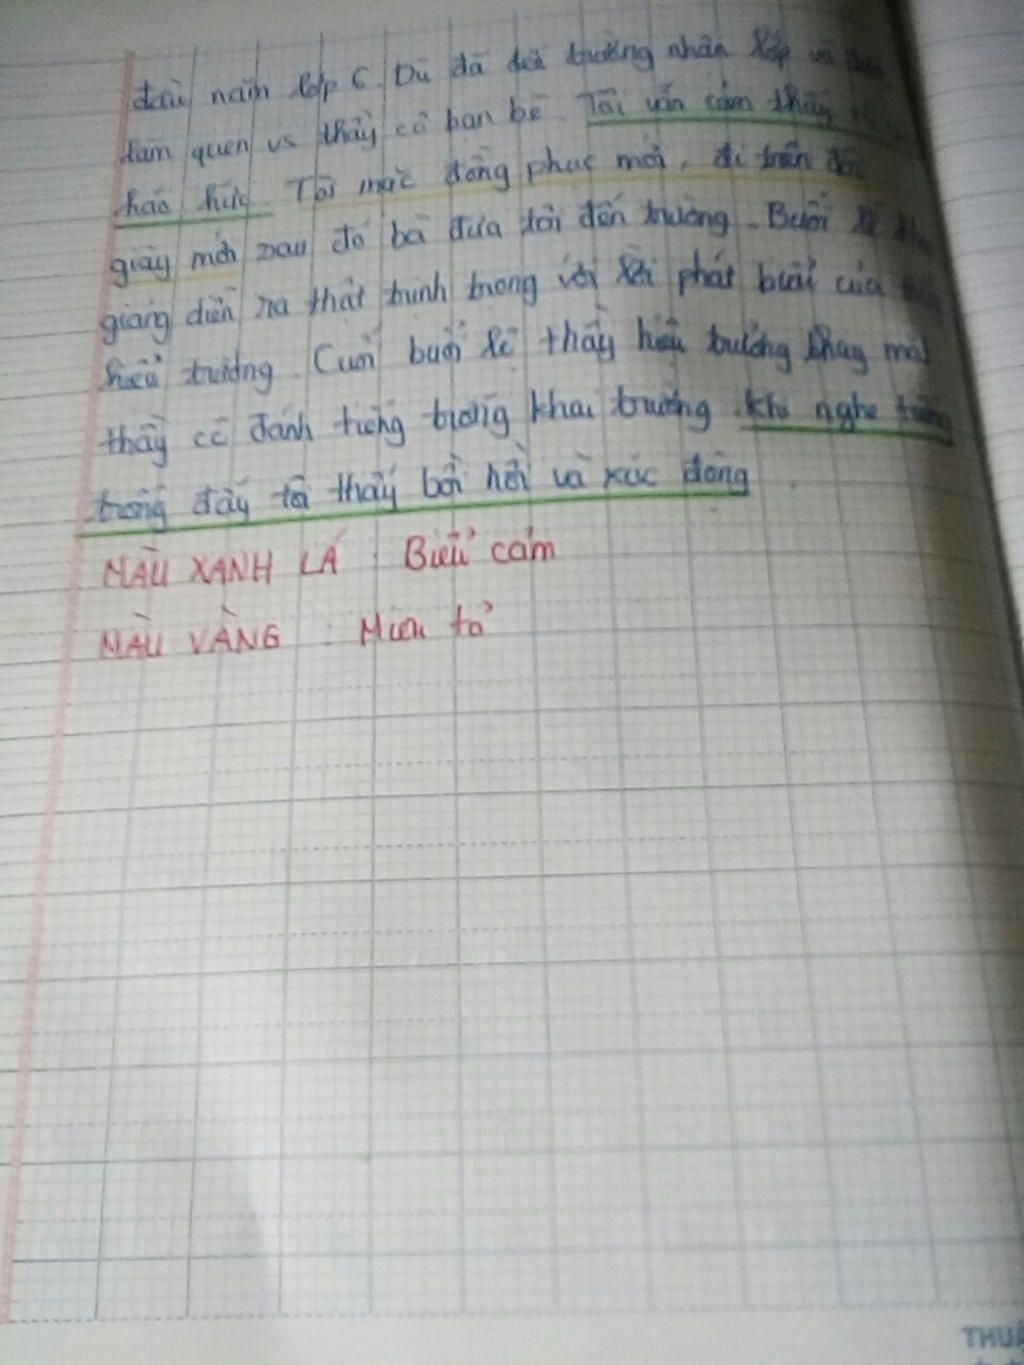 đầu năm lớp 6. Dù đã đến trường nhận lớp và
làm quen vs thầy cô bạn bè. Tôi vẫn cảm thấy
háo hức. Tôi mặc đồng phục mới, đi trên đôi
giày mới sau đó bà đưa tôi đến trường. Buổi lễ
giảng diễn ra thật trịnh trọng với lời phát biểu của
hiệu trưởng. Cuối buổi lễ thầy hiệu trưởng thay mặt
thầy cô đánh tiếng trống khai trường. Khi nghe tiếng
trống đấy tôi thấy bồi hồi và xúc động
MÀU XANH LÁ : Biểu cảm
MÀU VÀNG : Miêu tả
THUẬ